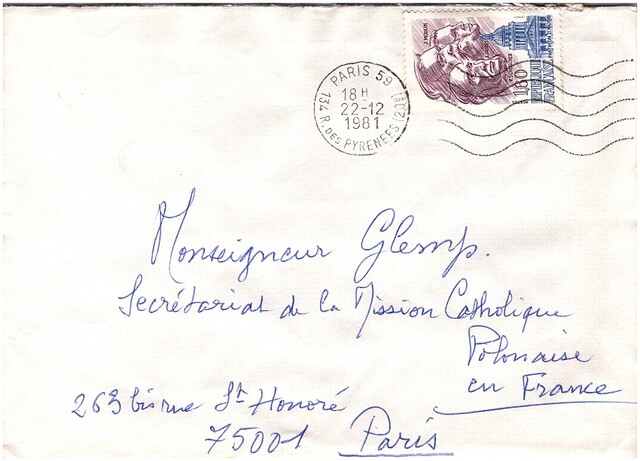 J. MOULIN
1,60
REPUBLIQUE
FRANÇAISE
PARIS 59
18H
22-12
1981
134 R. DES PYRENEES (20E)
Monseigneur Glemp.
Secrétariat de la Mission Catholique
Polonaise
en France
263 bis rue St Honoré
75001 Paris